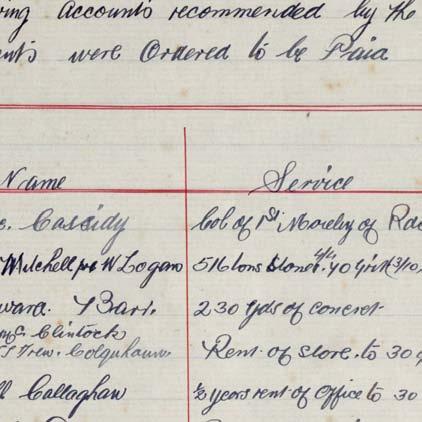 ing accounts recommended by the
nts were Ordered to be Paid
Name Service
c. Cassidy Cob of 1st Moiety of Ra
Mitchell per W Logan 516 tons stones
ward. Barr. 230 yds of concret
McClintock
Colquhoun Rent of store. to 30
ll Callaghan ½ years rent of Office to 30